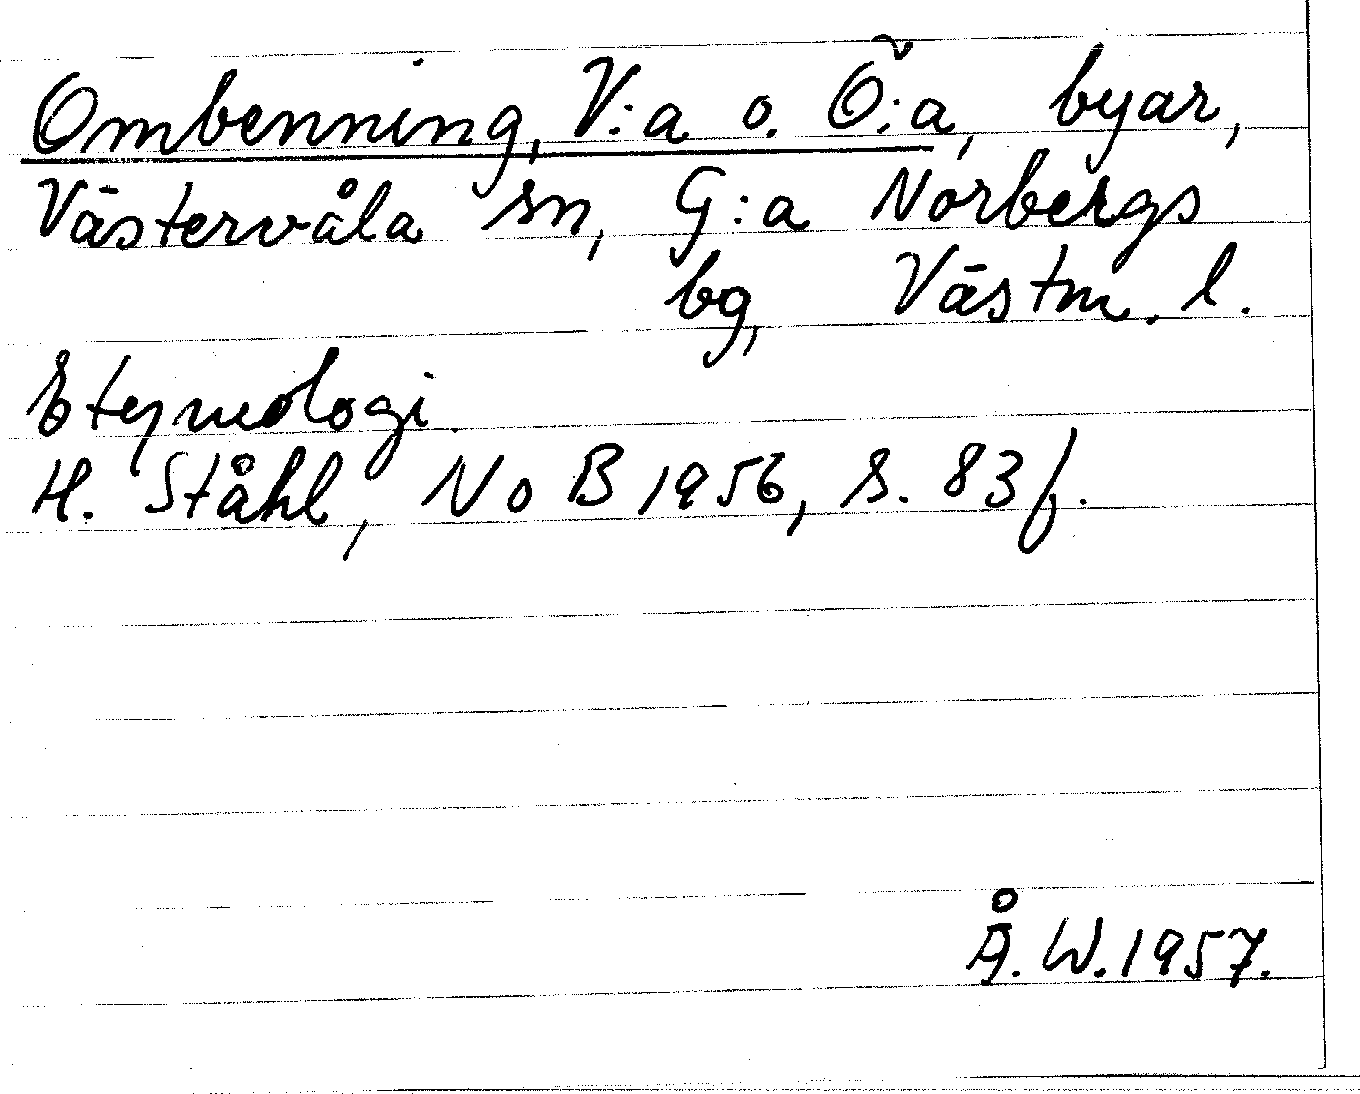 Ombenning, V:a o. Ö:a, byar,
Västervåla sn, G:a Norbergs
bg, Västm. l.
Etymologi.
H. Ståhl, NoB 1956, s. 83 f.
Å. W. 1957.